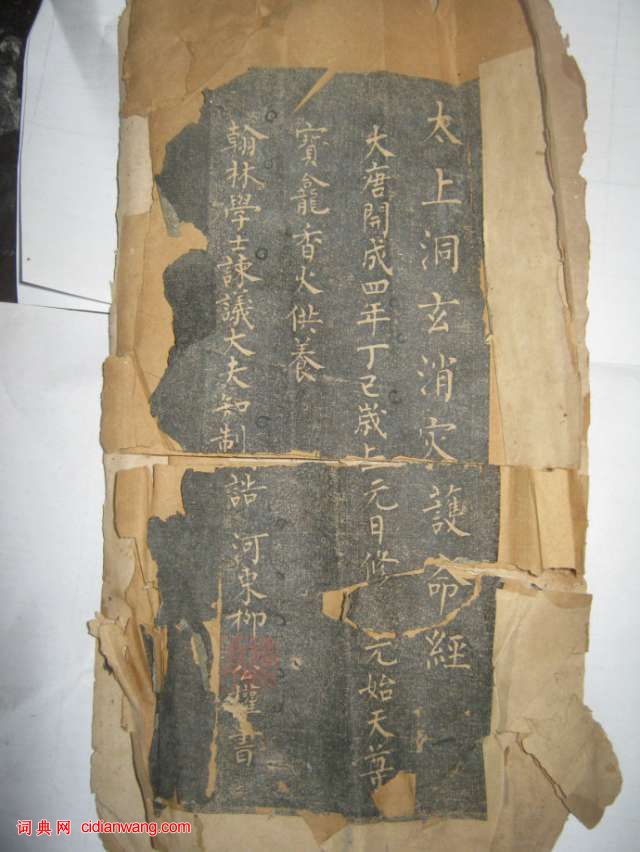 太上洞玄消灾護命經
大唐開成四年丁巳歲上元日修 元始天尊
寶龕香火供養
翰林學士諫議大夫知制誥 河東柳公權書
词典网 cidianwang.com